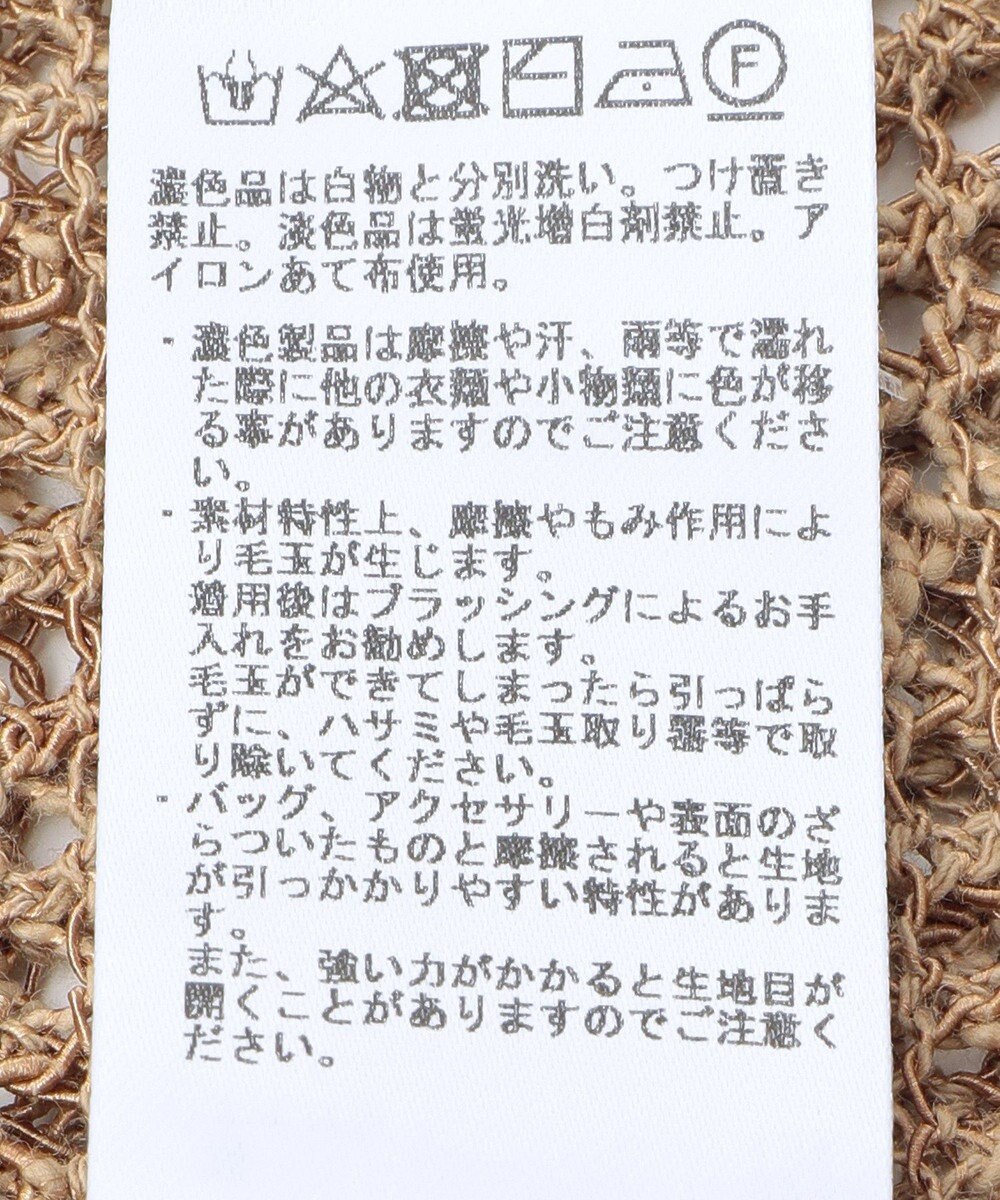 F
濃色品は白物と分別洗い。つけ置き
禁止。淡色品は蛍光増白剤禁止。ア
イロンあて布使用。
・濃色製品は摩擦や汗、雨等で濡れ
た際に他の衣類や小物類に色が移
る事がありますのでご注意くださ
い。
・素材特性上、摩擦やもみ作用によ
り毛玉が生じます。
着用後はブラッシングによるお手
入れをお勧めします。
毛玉ができてしまったら引っぱら
ずに、ハサミや毛玉取り器等で取
り除いてください。
・バッグ、アクセサリーや表面のざ
らついたものと摩擦されると生地
が引っかかりやすい特性がありま
す。
また、強い力がかかると生地目が
開くことがありますのでご注意く
ださい。